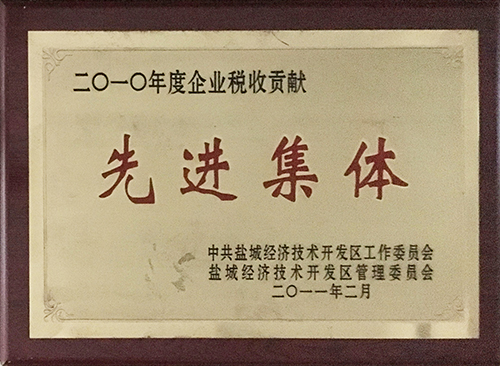 二〇一〇年度企业税收贡献
先进集体
中共盐城经济技术开发区工作委员会
盐城经济技术开发区管理委员会
二〇一一年二月